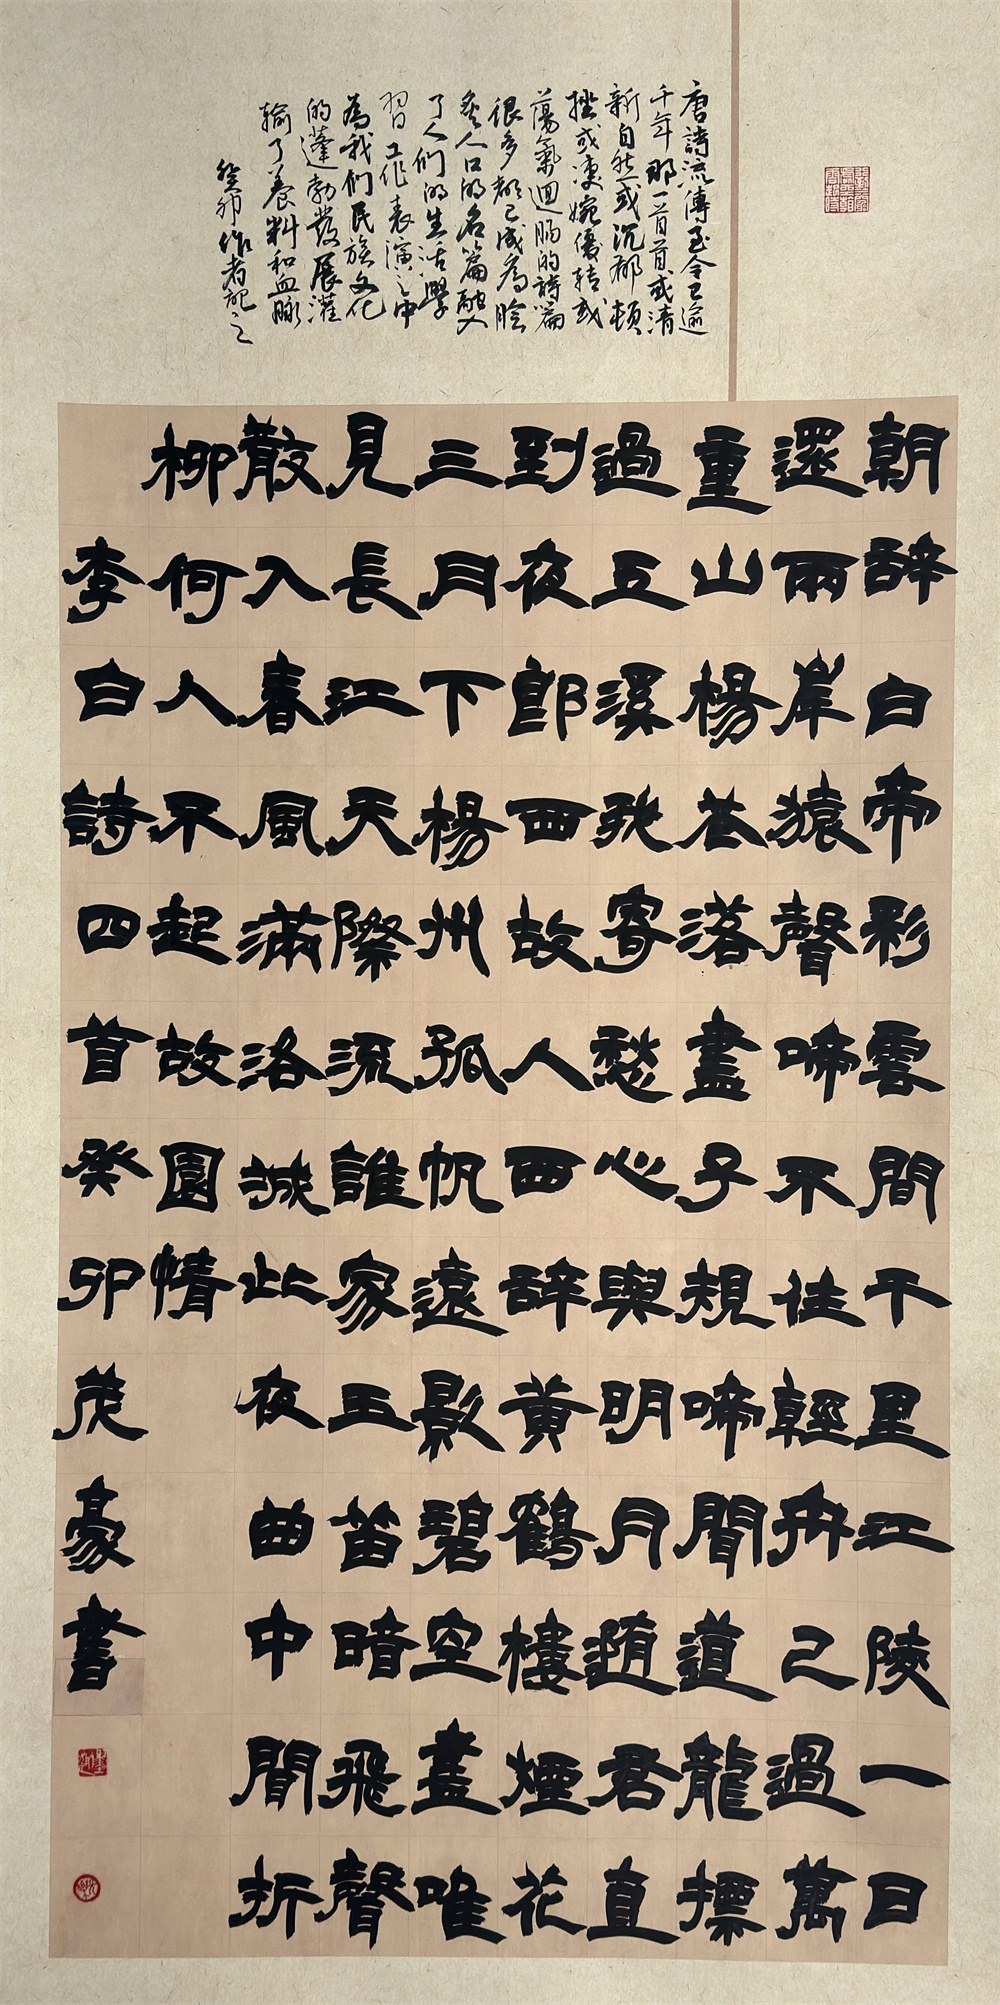 唐詩流傳至今已逾
千年那一首首或清
新自然或沉郁頓
挫或凄婉優轉或
蕩氣迴腸的詩篇
很多都已成為膾
炙人口的名篇融入
了人们的生活學
習工作表演之中
為我们民族文化
的蓬勃發展灌
輸了養料和血脈
癸卯作者記之
朝辭白帝彩雲間千里江陵一日
還兩岸猿聲啼不住輕舟已過萬
重山楊花落盡子規啼聞道龍標
過五溪我寄愁心與明月随君直
到夜郎西故人西辭黄鶴樓煙花
三月下楊州孤帆遠影碧空盡唯
見長江天際流誰家玉笛暗飛聲
散入春風滿洛城此夜曲中聞折
柳何人不起故園情
李白詩四首癸卯茂豪書